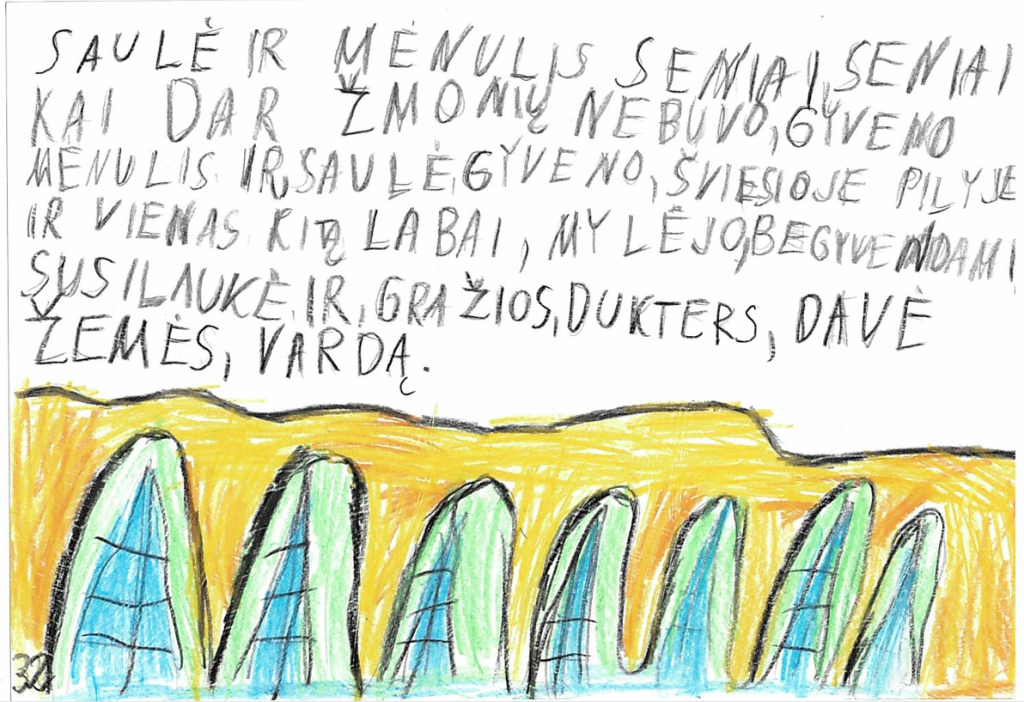 SAULĖ IR MĖNULIS SENIAI, SENIAI
KAI DAR ŽMONIŲ NEBUVO, GYVENO
MĖNULIS IR SAULĖ, GYVENO, ŠVIESIOJE PILYJE
IR VIENAS KITĄ LABAI, MYLĖJO, BEGYVENDAMI
SUSILAUKĖ, IR, GRAŽIOS, DUKTERS, DAVĖ
ŽEMĖS, VARDĄ.
32